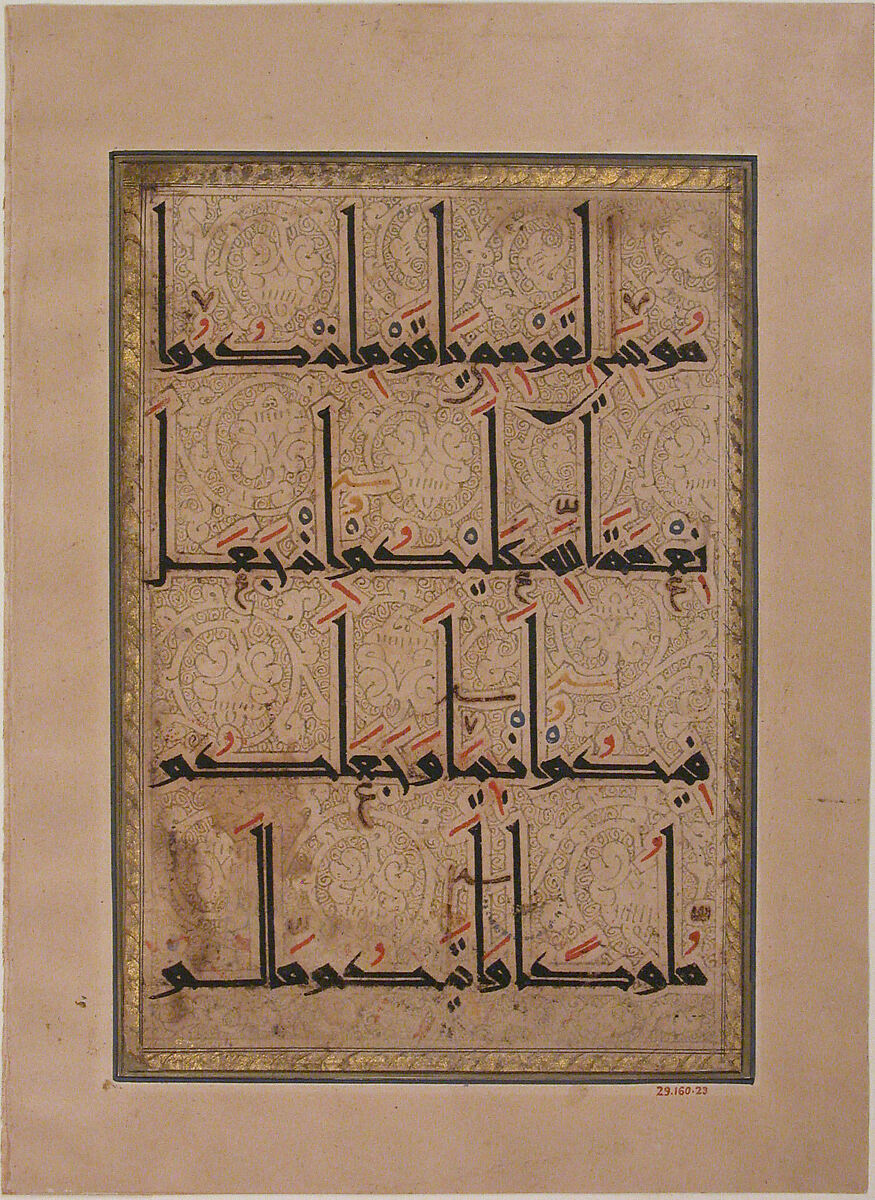 مُوسَىٰ لِقَوْمِهِ يَا قَوْمِ اذْكُرُوا
نِعْمَةَ اللَّهِ عَلَيْكُمْ إِذْ جَعَلَ
فِيكُمْ أَنْبِيَاءَ وَجَعَلَكُمْ
مُلُوكًا وَآتَيكُمْ مَا لَمْ
29.160.23